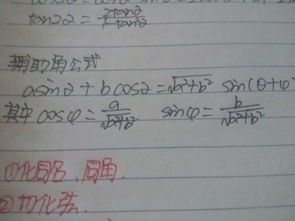 tan2α = 2tanα/1-tan²α
辅助角公式
asinα + bcosα = √a²+b² sin(θ+φ
其中 cosφ = a/√a²+b² sinφ = b/√a²+b²
①化同名、同角.
②切化弦.